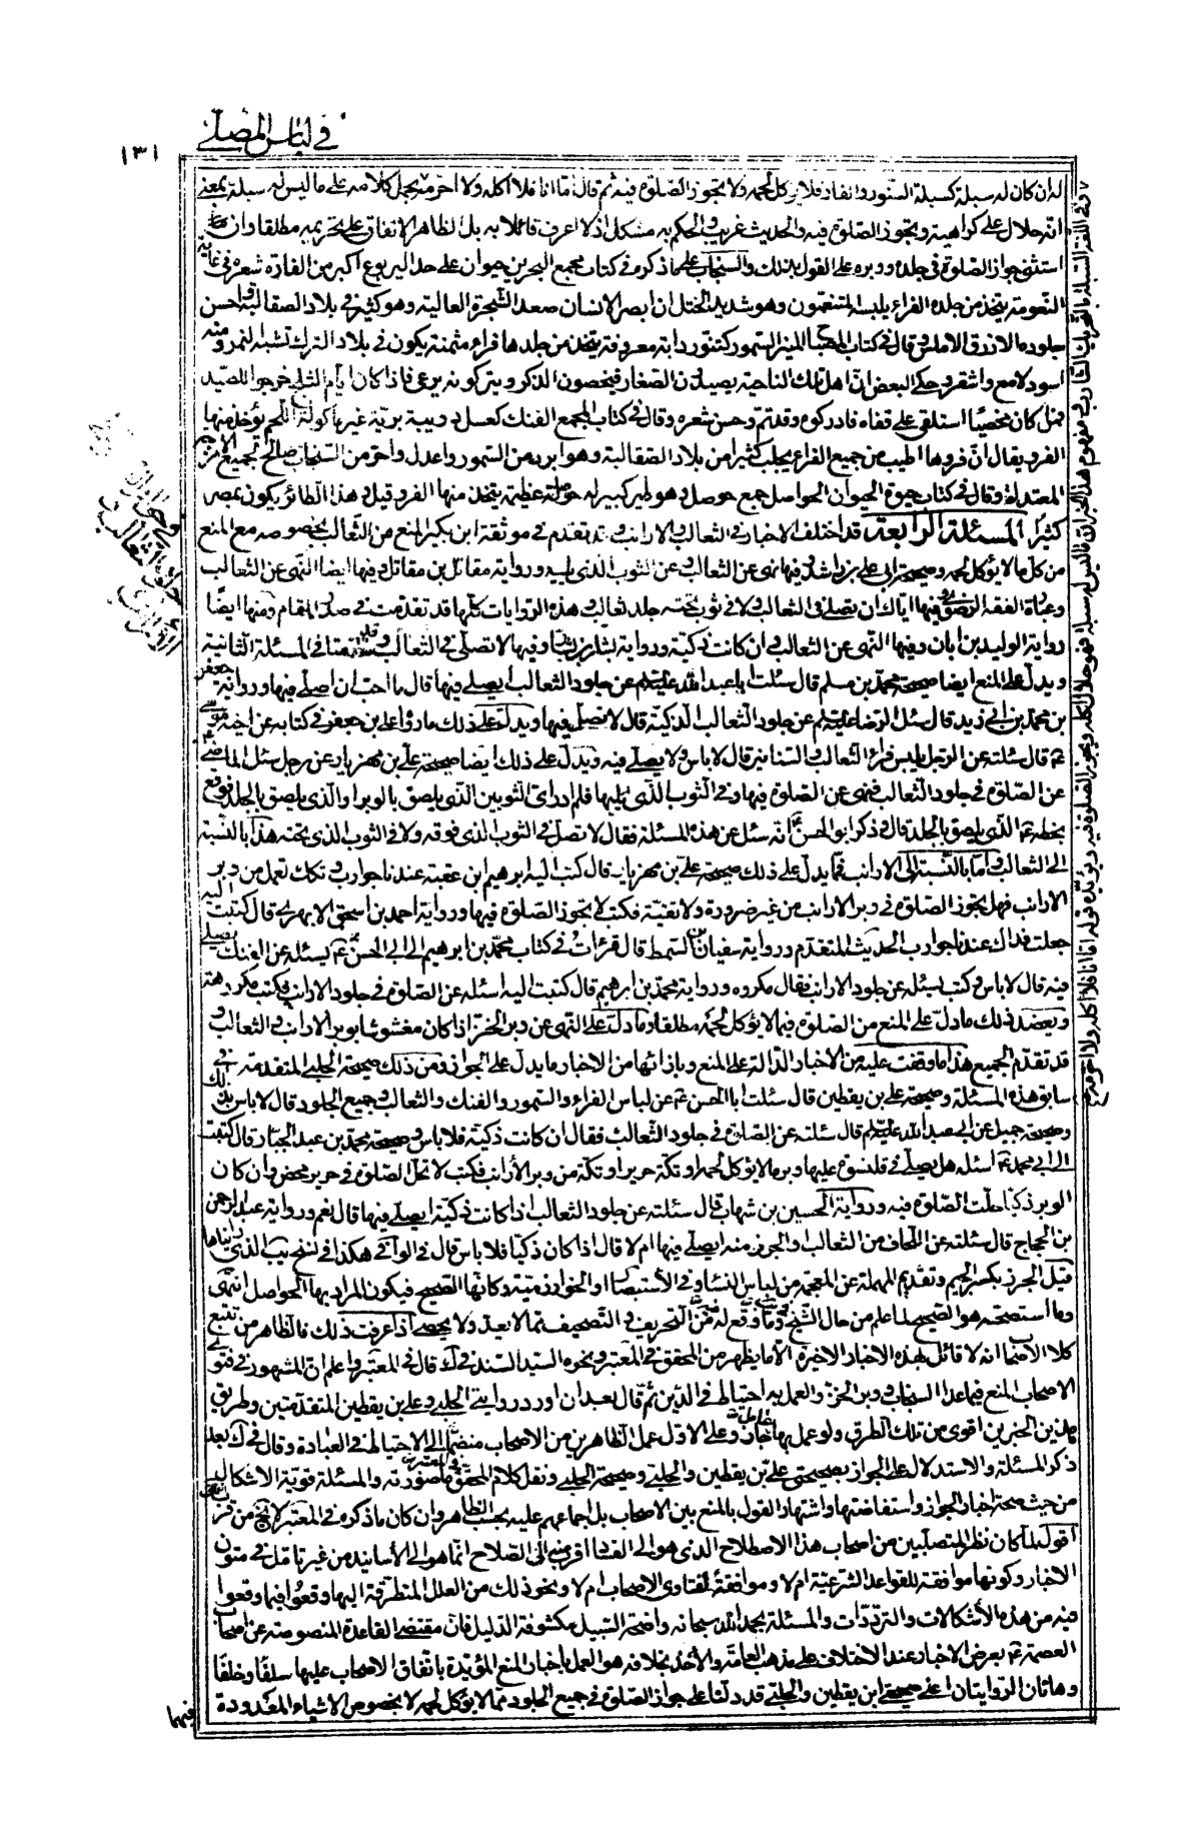 في لباس المصلي
١٣١
له ان كان له سبلة كسبلة السنور والفار فلا يؤكل لحمه ولا يجوز الصلوة فيه ثم قال اما انا فلا اكله ولا احرمه بحمل كلامه على ما ليس له سبلة بمعنى
انه حلال على كراهية ويجوز الصلوة فيه والحديث غريب والحكم به مشكل اذ لا اعرف قائلا به بل الظاهر الاتفاق على تحريمه مطلقا وان
استثنى جواز الصلوة في جلده ووبره على القول بذلك والسنجاب على ما ذكره في كتاب مجمع البحرين حيوان على حد اليربوع اكبر من الفارة شعره في غاية
النعومة يتخذ من جلده الفراء يلبسه المتنعمون وهو شديد الختل ان ابصر الانسان صعد الشجرة العالية وهو كثير في بلاد الصقالبة واحسن
جلوده الازرق الاملس وقال في كتاب المصباح المنير السمور كتنور دابة معروفة يتخذ من جلدها فراء مثمنة يكون في بلاد الترك تشبه النمر ومنه
اسود لامع واشقر وحكى البعض ان اهل تلك الناحية يصيدون الصغار فيخصون الذكور ويتركونه يرعى فاذا كان ايام الثلج خرجوا للصيد
فمن كان مخصيا استلقى على قفاه فادركوه وقد سمن وحسن شعره وقال في كتاب المجمع الفنك كعسل دويبة برية غير مأكولة اللحم يؤخذ منها
الفرو يقال ان فروها اطيب من جميع الفراء يجلب كثيرا من بلاد الصقالبة وهو ابرد من السمور واعدل واحر من السنجاب صالح لجميع الامزجة
المعتدلة وقال في كتاب حيوة الحيوان الحواصل جمع حوصل وهو طير كبير له حوصلة عظيمة يتخذ منها الفرو قيل وهذا الطائر يكون بمصر
كثيرا المسئلة الرابعة قد اختلف الاخبار في الثعالب والارانب وقد تقدم في موثقة ابن بكير المنع من الثعالب بخصوصه مع المنع
من كل ما لا يؤكل لحمه وصحيحة ابي علي بن راشد وفيها نهى عن الثعالب وعن الثوب الذي يليه ورواية مقاتل بن مقاتل وفيها ايضا النهى عن الثعالب
وعبارة الفقه الرضوي وفيها اياك ان تصلي في الثعالب ولا في ثوب تحته جلد ثعالب وهذه الروايات كلها قد تقدمت في صدر المقام ومنها ايضا
رواية الوليد بن ابان وفيها النهى عن الثعالب وان كانت ذكية ورواية بشار بن بشار وفيها لا تصلي في الثعالب وقد تقدمتا في المسئلة الثانية
ويدل على المنع ايضا صحيحة محمد بن مسلم قال سئلت ابا عبد الله عليه السلم عن جلود الثعالب ايصلى فيها قال ما احب ان اصلي فيها ورواية جعفر
بن محمد بن ابي زيد قال سئل الرضا عليه السلم عن جلود الثعالب الذكية قال لا تصل فيها ويدل على ذلك ما رواه علي بن جعفر في كتابه عن اخيه موسى
ع قال سئلته عن الرجل يلبس فراء الثعالب والسنانير قال لا باس ولا يصلي فيه ويدل على ذلك ايضا صحيحة علي بن مهزيار عن رجل سئل الماضي ع
عن الصلوة في جلود الثعالب فنهى عن الصلوة فيها وفي الثوب الذي يليها فلم ادر اي الثوبين الذي يلصق بالوبر او الذي يلصق بالجلد فوقع
بخطه ع الذي يلصق بالجلد قال وذكر ابو الحسن انه سئل عن هذه المسئلة فقال لا تصل في الثوب الذي فوقه ولا في الثوب الذي تحته هذا بالنسبة
الى الثعالب واما بالنسبة الى الارانب فمما يدل على ذلك صحيحة علي بن مهزيار قال كتب اليه ابرهيم ابن عقبة عندنا جوارب وتكك تعمل من وبر
الارانب فهل يجوز الصلوة في وبر الارانب من غير ضرورة ولا تقية فكتب لا يجوز الصلوة فيها ورواية احمد بن اسحق الابهري قال كتبت اليه
جعلت فداك عندنا جوارب الحديث المتقدم ورواية سفيان بن السمط قال قرأت في كتاب محمد بن ابرهيم الى ابي الحسن ع يسئله عن الفنك يصلى
فيه قال لا باس وكتب يسئله عن جلود الارانب فقال مكروه ورواية محمد بن ابرهيم قال كتبت اليه اسئله عن الصلوة في جلود الارانب فكتب مكروهة
ويعضد ذلك ما دل على المنع من الصلوة فيما لا يؤكل لحمه مطلقا وما دل على النهى عن وبر الخز اذا كان مغشوشا بوبر الارانب والثعالب و
قد تقدم الجميع هذا ما وقفت عليه من الاخبار الدالة على المنع وبازائها من الاخبار ما يدل على الجواز ومن ذلك صحيحة الحلبي المتقدمة في
سابق هذه المسئلة وصحيحة علي بن يقطين قال سئلت ابا الحسن ع عن لباس الفراء والسمور والفنك والثعالب وجميع الجلود قال لا باس بذلك
وصحيحة جميل عن ابي عبد الله عليه السلم قال سئلته عن الصلوة في جلود الثعالب فقال ان كانت ذكية فلا باس وصحيحة محمد بن عبد الجبار قال كتبت
الى ابي محمد ع اسئله هل يصلي في قلنسوة عليها وبر ما لا يؤكل لحمه او تكة حرير او تكة من وبر الأرانب فكتب لا تحل الصلوة في حرير محض وان كان
الوبر ذكيا حلت الصلوة فيه ورواية الحسين بن شهاب قال سئلته عن جلود الثعالب اذا كانت ذكية ايصلى فيها قال نعم ورواية عبد الرحمن
بن الحجاج قال سئلته عن اللحاف من الثعالب والجرز منه ايصلى فيها ام لا قال اذا كان ذكيا فلا باس قال في الوافي هكذا في نسخ يب الذي رايناها
قيل الجرز بكسر الجيم وتقديم المهملة على المعجمة من لباس النساء وفي الاستبصار او الخوارزمية وكانها الصحيح فيكون المراد بها الحواصل انتهى
وما استصحه هو الصحيح لما علم من حال الشيخ وما وقع له من التحريف والتصحيف مما لا يعد ولا يحصى اذا عرفت ذلك فالظاهر من تتبع
كلام الاصحاب انه لا قائل بهذه الاخبار الاخيرة الا ما يظهر من المحقق في المعتبر ونحوه السيد السند في ك قال في المعتبر واعلم ان المشهور في فتوى
الاصحاب المنع فيما عدا السنجاب ووبر الخز والعمل به احتياط في الدين ثم قال بعد ان اورد روايتي الحلبي وعلي بن يقطين المتقدمتين وطريق
هذين الخبرين اقوى من تلك الطرق ولو عمل بها عامل جاز وعلى الاول عمل الظاهرين من الاصحاب منضما الى الاحتياط في العبادة وقال في ك بعد
ذكر المسئلة والاستدلال على الجواز بصحيحتي علي بن يقطين والحلبي وصحيحة الحلبي ونقل كلام المحقق في المعتبر ما صورته والمسئلة قوية الاشكال
من حيث صحة اخبار الجواز واستفاضتها واشتهار القول بالمنع بين الاصحاب بل اجماعهم عليه بحسب الظاهر وان كان ما ذكره في المعتبر لا يخ من قرب
اقول لما كان نظر المتصلبين من اصحاب هذا الاصطلاح الذي هو الى الفساد اقرب من الى الصلاح انما هو الى الأسانيد من غير تأمل في متون
الاخبار وكونها موافقة للقواعد الشرعية ام لا وموافقة لفتاوى الاصحاب ام لا ونحو ذلك من العلل المتطرقة اليها وقعوا فيما وقعوا
فيه من هذه الأشكالات والترددات والمسئلة بحمد الله سبحانه واضحة السبيل مكشوفة الدليل فان مقتضى القاعدة المنصوصة عن اصحاب
العصمة ع بعرض الاخبار عند الاختلاف على مذهب العامة والأخذ بخلافه هو العمل باخبار المنع المؤيدة باتفاق الاصحاب عليها سلفا وخلفا
وهاتان الروايتان اعني صحيحتي ابن يقطين والحلبي قد دلتا على جواز الصلوة في جميع الجلود مما لا يؤكل لحمه لا بخصوص الاشياء المعدودة
فيها